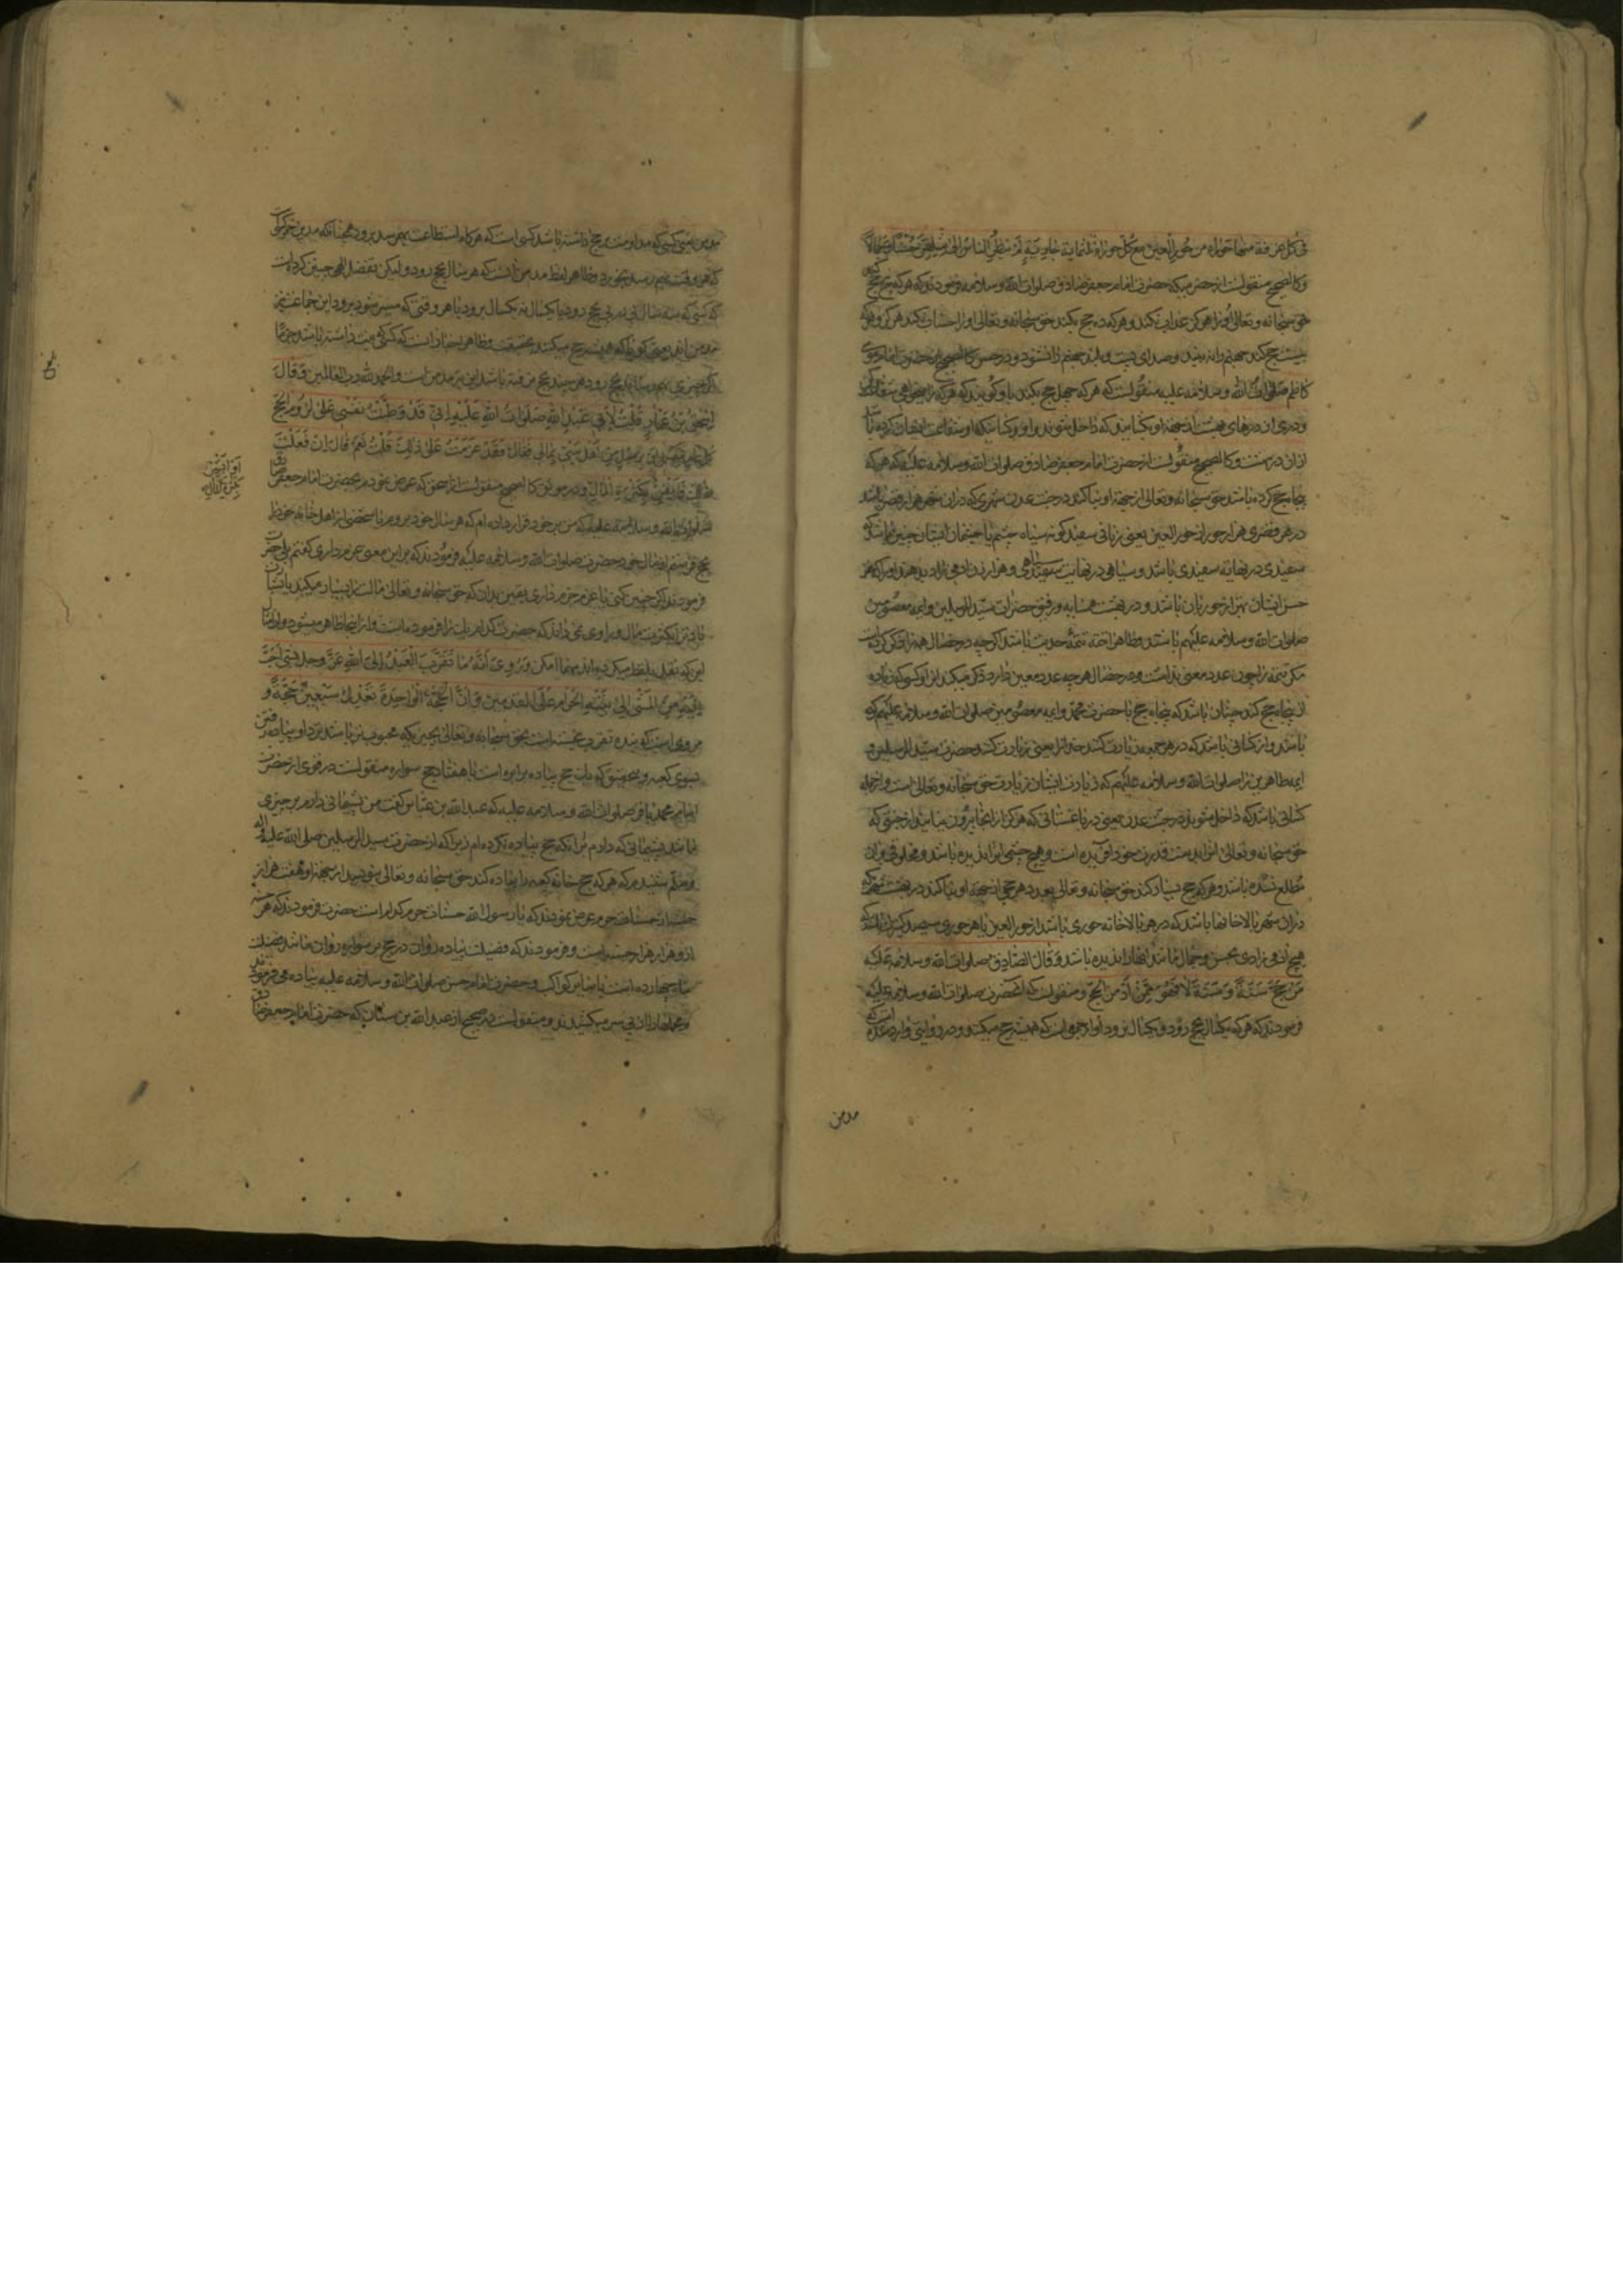 فی کل غرفة منها حوراء من حور العین مع کل حوراء ثلثمایة جاریة لم ینظر الناس الی مثلهن حسنا وجمالا
وکالصحیح منقولست از حضرت امام جعفر صادق صلوات الله وسلامه فرمودند که هر که پنج حج کند
حق سبحانه وتعالی او را هرگز عذاب نکند وهر که ده حج بکند حق سبحانه وتعالی او را حساب نکند هرگز وهر که
بیست حج کند جهنم را نه بیند وصدای پست وبلند جهنم را نشنود ودر حسن کالصحیح از حضرت امام موسی
کاظم صلوات الله وسلامه علیه منقولست که هر که چهل حج بکند باو گویند که هر که را میخواهی شفاعت کن
ودری از درهای بهشت از جهة او بگشایند که داخل شوند او وکسانیکه او شفاعت ایشان کرده باشد
ازان در بهشت وکالصحیح منقولست از حضرت امام جعفر صادق صلوات الله وسلامه علیه که هر که
پنجاه حج کرده باشد حق سبحانه وتعالی از جهة او بنا کند در جنت عدن شهری که دران صد هزار قصر باشد
در هر قصری هزار حور از حور العین یعنی زنانی سفید گونه سیاه چشم یا چشمان ایشان چنین باشد که
سفیدی در نهایت سفیدی باشد وسیاهی در نهایت سیاهی وهزار زن آدمی زاد بدهند او را که هر
حسن ایشان بهتر از حوریان باشد ودر بهشت همسایه ورفیق حضرات سید المرسلین وایمه معصومین
صلوات الله وسلامه علیهم باشد وظاهرا تتمه حدیث باشد اگرچه در خصال همه را ذکر کرده است
مگر تتمه را چون عدد معین نداشت ودر خصال هر چه عدد معین دارد ذکر میکند از او کسی که زیاده
از پنجاه حج کند چنان باشد که پنجاه حج با حضرت محمد وایمه معصومین صلوات الله وسلامه علیهم کرده
باشد واز کسانی باشد که در هر جمعه زیارت کنند خدا را یعنی زیارت کنند حضرت سید المرسلین و
ایمه طاهرین را صلوات الله وسلامه علیهم که زیارت ایشان زیارت حق سبحانه وتعالی است واز جمله
کسانی باشد که داخل شوند در جنت عدن یعنی در باغستانی که هرگز از انجا بیرون نیایند از جنتی که
حق سبحانه وتعالی انرا بدست قدرت خود آفریده است وهیچ چشمی انرا ندیده باشد ومخلوقی بران
مطلع نشده باشد وهر که حج بسیار کند حق سبحانه وتعالی بعدد هر حجی از جهة او بنا کند در بهشت شهری که
دران شهر بالاخانها باشد که در هر بالاخانه حوری باشد از حور العین با هر حوری سیصد کنیز باشد که
هیچ آدمی زادی بحسن وجمال مانند انها را ندیده باشد وقال الصادق صلوات الله وسلامه علیه
من حج سنة وسنة لا فهو ممن ادمن الحج ومنقولست که انحضرت صلوات الله وسلامه علیه
فرمودند که هر که یکسال بحج رود ویکسال نرود او از جمعی است که همیشه حج میکند ودر روایتی وارد شده است که
مدمن
مدمن یعنی کسی که مداومت بر حج داشته باشد کسی است که هرگاه استطاعت بهم رسد برود همچنانکه مدمن خمر کسی است
که هر وقت بهم رسد بخورد وظاهر لفظ مدمن انست که هر سال بحج رود ولیکن بتفضل الهی چنین کرده است
که کسی که سه سال پی در پی بحج رود یا یکسال نه یکسال برود یا هر وقتی که میسر شود برود این جماعت نیز
مدمن اند یعنی گویا که همیشه حج میکنند بحقیقت وظاهر اخبار انست که کسی که نیت داشته باشد
که چیزی بهم رساند بحج رود هر چند بحج نرفته باشد این نیز مدمن است والحمد لله رب العالمین وقال
اسحق بن عمار قلت لابی عبد الله صلوات الله علیه انی قد وطنت نفسی علی لزوم الحج
کل عام بنفسی او برجل من اهل بیتی بمالی فقال وقد عزمت علی ذلک قلت نعم قال ان فعلت
ذلک فایقن بکثرة المال ودر موثق کالصحیح منقولست از اسحق که عرض نمودم بحضرت امام جعفر صادق
صلوات الله وسلامه علیه که من بر خود قرار داده ام که هر سال خود بروم یا شخصی از اهل خانه خود را
بحج فرستم از مال خود حضرت صلوات الله وسلامه علیه فرمودند که بر این معنی عزم داری گفتم بلی حضرت
فرمودند اگر چنین کنی یا عزم جزم داری یقین بدان که حق سبحانه وتعالی مالت را بسیار میکند یا بشارت
باد ترا بکثرت مال وراوی نمی داند که حضرت کدام یک را فرموده است
این که نقل بلفظ میکرده اند مهما امکن وروی انه ما تقرب العبد الی الله عز وجل بشی احب
الیه من المشی الی بیته الحرام علی القدمین وان الحجة الواحدة تعدل سبعین حجة و
مرویست که بنده تقرب نجسته است بحق سبحانه وتعالی بچیزی که محبوب تر باشد نزد او از پیاده رفتن
بسوی کعبه وبتحقیق که یک حج پیاده برابر است با هفتاد حج سواره منقولست در قوی از حضرت
امام محمد باقر صلوات الله وسلامه علیه که عبد الله بن عباس گفت من پشیمانی ندارم بر چیزی
مانند پشیمانی که دارم برانکه حج پیاده نکرده ام زیرا که از حضرت سید المرسلین صلی الله علیه واله
وسلم شنیدم که هر که حج خانه کعبه را پیاده کند حق سبحانه وتعالی بنویسد از جهة او هفت هزار
حسنه از حسنات حرم عرض نمودند که یا رسول الله حسنات حرم کدام است حضرت فرمودند که هر حسنه
ازو هزار هزار حسنه است وفرمودند که فضیلت پیاده روان در حج بر سواره روان مانند فضیلت
ماه چهارده است با سایر کواکب وحضرت امام حسن صلوات الله وسلامه علیه پیاده می فرمودند
ومحملها از پی سر میکشیدند ومنقولست در صحیح از عبد الله بن سنان که حضرت امام جعفر صادق